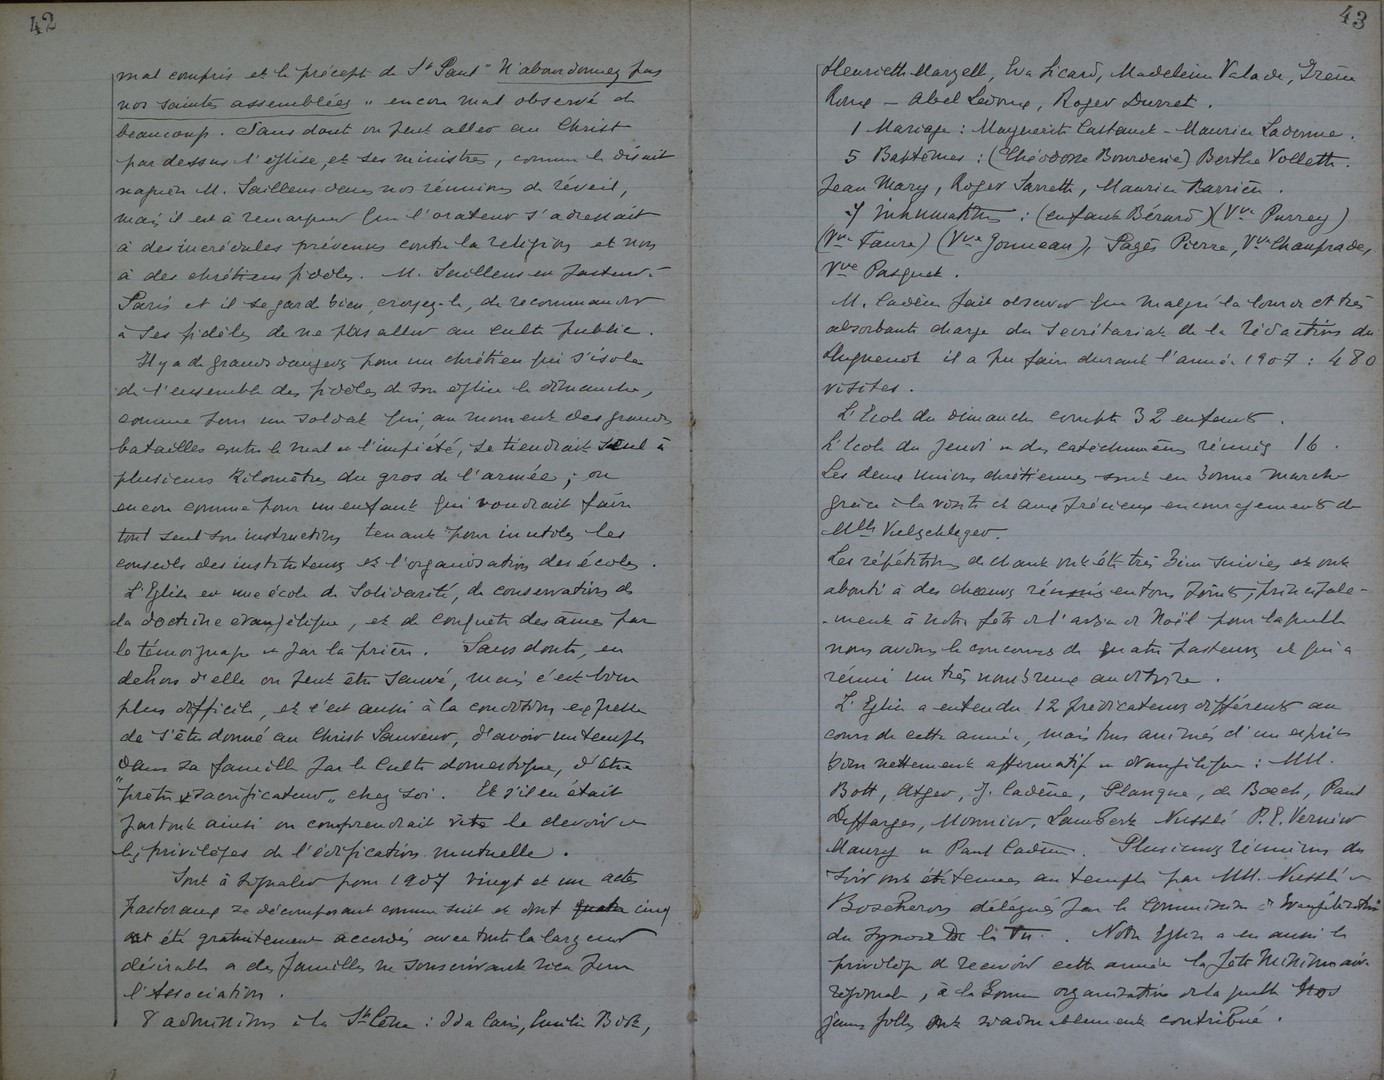 42
mal compris et le précepte de St Paul "N'abandonnez pas
nos saintes assemblées" encore mal observé de
beaucoup. Sans doute on peut aller au Christ
par dessus l'église, et ses ministres, comme le disait
naguère M. Saillens dans nos réunions de réveil,
mais il est à remarquer que l'orateur s'adressait
à des incrédules prévenus contre la religion et non
à des chrétiens fidèles. M. Saillens est pasteur à
Paris et il se garde bien, croyez-le, de recommander
à ses fidèles de ne pas aller au culte public.
Il y a de grands dangers pour un chrétien qui s'isole
de l'ensemble des fidèles de son église le dimanche,
comme pour un soldat qui, au moment des grandes
batailles entre le mal et l'impiété, se tiendrait seul à
plusieurs kilomètres du gros de l'armée ; ou
encore comme pour un enfant qui voudrait faire
tout seul son instruction tenant pour inutiles les
conseils des instituteurs et l'organisation des écoles.
L'Eglise est une école de solidarité, de conservation de
la doctrine évangélique, et de conquête des âmes par
le témoignage et par la prière. Sans doute, en
dehors d'elle on peut être sauvé, mais c'est bien
plus difficile, et c'est aussi à la condition expresse
de s'être donné au Christ Sauveur, d'avoir un temple
dans sa famille par le culte domestique, d'être
"prêtre & sacrificateur" chez soi. Et s'il en était
partout ainsi on comprendrait vite le devoir et
les privilèges de l'édification mutuelle.
Sont à signaler pour 1907 vingt et un actes
pastoraux se décomposant comme suit et dont quatre cinq
ont été gratuitement accordés avec toute la largeur
désirable à des familles ne souscrivant rien pour
l'Association.
8 admissions à la Ste Cène : Ida Caris, Emilie Bost,
43
Henriette Margell, Eva Sicard, Madeleine Valade, Irène
Roux - Abel Ledoux, Roger Durret.
1 Mariage : Marguerite Castanet - Maurice Ladonne.
5 Baptêmes : (Théodore Bourderie) Berthe Vollette.
Jean Mary, Roger Sarrette, Maurice Barrière.
7 inhumations : (enfant Bérard) (Vve Purrey)
(Vve Faure) (Vve Jonneau), Pagès Pierre, Vve Chauprades,
Vve Pasquet.
M. Cadène fait observer que malgré la lourde et très
absorbante charge du secrétariat de la rédaction du
Huguenot il a pu faire durant l'année 1907 : 480
visites.
L'Ecole du dimanche compte 32 enfants.
L'école du jeudi et des catéchumènes réunis 16.
Les deux unions chrétiennes sont en bonne marche
grâce à la visite et aux précieux encouragements de
Mlle Vielschleger.
Les répétitions de chant ont été très bien suivies et ont
abouti à des choeurs réussis en tous points, principale-
-ment à notre fête de l'arbre de Noël pour laquelle
nous avions le concours de quatre pasteurs et qui a
réuni un très nombreux auditoire.
L'Eglise a entendu 12 prédicateurs différents au
cours de cette année, mais tous animés d'un esprit
bien nettement affirmatif et évangélique : MM.
Bott, Atger, J. Cadène, Planque, de Boeck, Paul
Deffarges, Monnier, Lambert Nusslé P.E. Vernier
Maury et Paul Cadène. Plusieurs réunions du
soir ont été tenues au temple par MM. Nusslé et
Boscheron délégués par la Commission d'Evangélisation
du synode de la Notre Eglise a eu aussi le
privilège de recevoir cette année la fête Missionnaire
régionale, à la bonne organisation de laquelle nos
jeunes filles ont admirablement contribué.